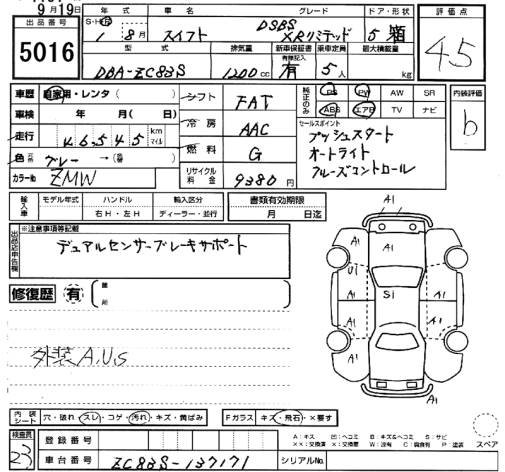 9月19日
出品番号
5016
年式 車名 グレード ドア・形状
S・H・R 1年 8月 スイフト DSBS XRリミテッド 5 箱
型式 排気量 新車保証書 乗車定員 最大積載量
DBA-ZC83S 1200cc 有 有無記入 5人 kg
評価点
4.5
車歴 自家用・レンタ( )
車検 年 月( 日)
走行 46,545 km マイル
色 元色 グレー →( 色替 )
カラーNo ZMW
シフト FAT
冷房 AAC
燃料 G
リサイクル料金 9380円
純正のみ
PS PW AW SR
ABS エアB TV ナビ
セールスポイント
プッシュスタート
オートライト
クルーズコントロール
内装評価
b
輸入車 モデル年式 ハンドル 輸入区分 書類有効期限
右H・左H ディーラー・並行 月 日迄
出品店申告欄
※注意事項等記載
デュアルセンサーブレーキサポート
修復歴 有 箇所
外装A.U.S
A1
A1
A1
A1
U1
A1
A1
S1
A1
A1
A1
A1
内装シート 穴・破れ スレ・コゲ・汚れ・キズ・黄ばみ Fガラス キズ・飛石・×要す
検査員
23
登録番号
車台番号 ZC83S-137171 シリアルNo.
A:キズ 凹:ヘコミ B:キズ&ヘコミ S:サビ
××:交換済 ×:交換要 W:波有 C:腐食有 P:塗装
スペア